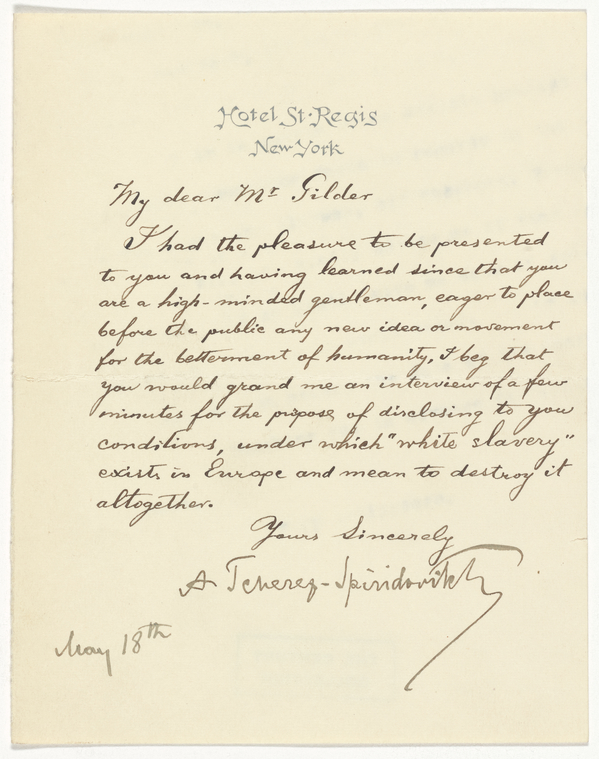 Hotel St. Regis
New York
My dear Mr Gilder
I had the pleasure to be presented
to you and having learned since that you
are a high-minded gentleman, eager to place
before the public any new idea or movement
for the betterment of humanity, I beg that
you would grand me an interview of a few
minutes for the propose of disclosing to you
conditions, under which "white slavery"
exists in Europe and mean to destroy it
altogether.
Yours Sincerely
A Tcherep-Spiridovitch
May 18th